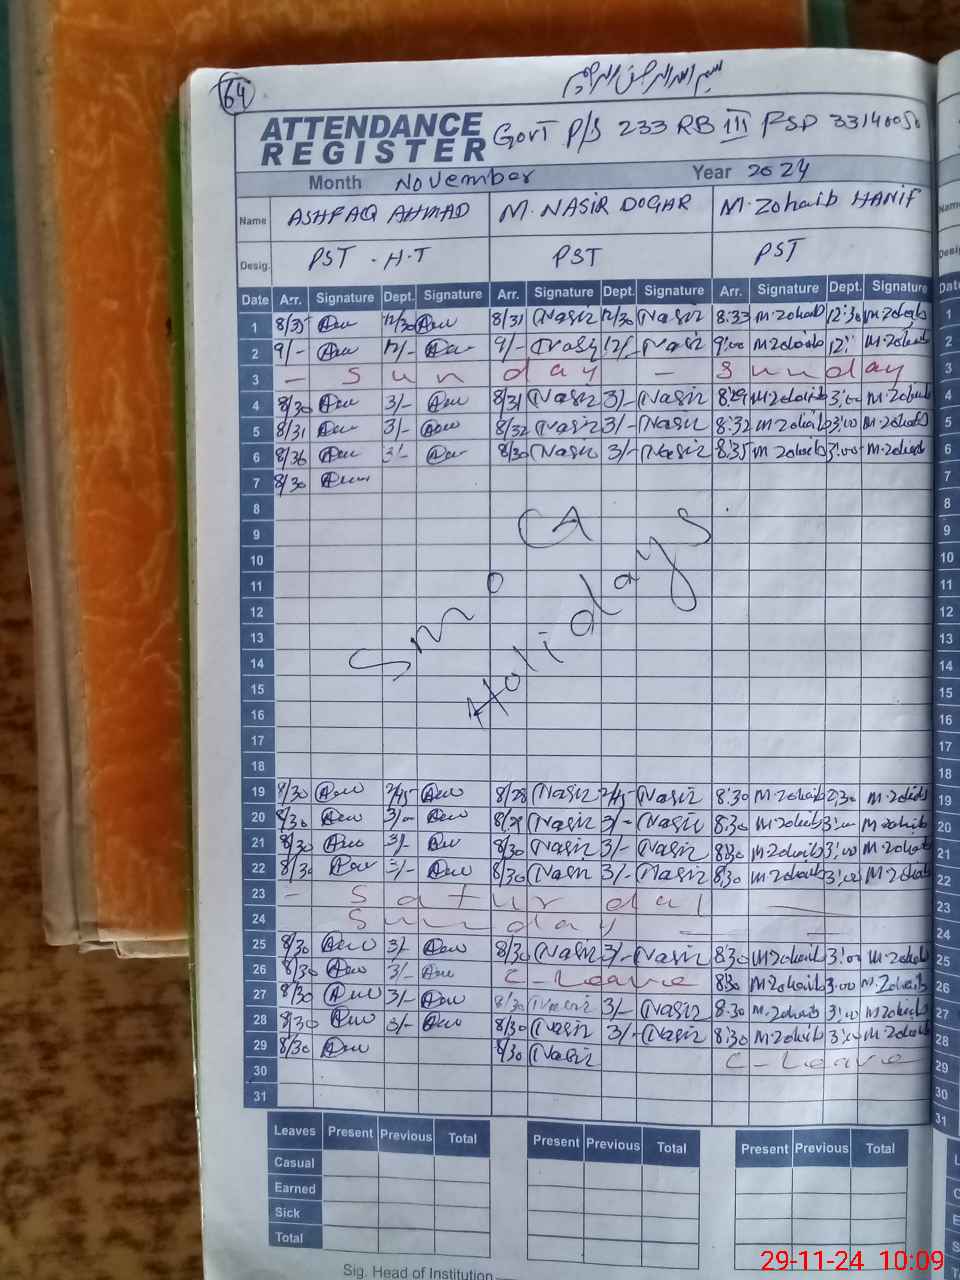 64
بسم الله الرحمن الرحيم
ATTENDANCE REGISTER GovT P/S 233 RB III FSD 33140050
Month November Year 2024
Name ASHFAQ AHMAD M. NASIR DOGAR M. Zohaib HANIF
Desig. PST - H.T PST PST
Date Arr. Signature Dept. Signature Arr. Signature Dept. Signature Arr. Signature Dept. Signature Date
1 8/35 12/30 8/31 Nasir 12/30 Nasir 8:33 M.Zohaib 12:30 M.Zohaib 1
2 9/- 12/- 9/- Nasir 12/- Nasir 9:00 M.Zohaib 12: M.Zohaib 2
3 - Sunday - Sunday 3
4 8/30 3/- 8/31 Nasir 3/- Nasir 8:29 M.Zohaib 3:00 M.Zohaib 4
5 8/31 3/- 8/32 Nasir 3/- Nasir 8:32 M.Zohaib 3:00 M.Zohaib 5
6 8/36 3/- 8/30 Nasir 3/- Nasir 8:35 M.Zohaib 3:00 M.Zohaib 6
7 8/30 7
8 8
9 9
10 10
11 11
12 12
13 13
14 14
15 15
16 16
17 17
18 18
Smog
Holidays
19 8/30 2/45- 8/28 Nasir 2/45- Nasir 8:30 M.Zohaib 2:30 M.Zohaib 19
20 8/30 3/- 8/29 Nasir 3/- Nasir 8:30 M.Zohaib 3:00 M.Zohaib 20
21 8/30 3/- 8/30 Nasir 3/- Nasir 8:30 M.Zohaib 3:00 M.Zohaib 21
22 8/30 3/- 8/30 Nasir 3/- Nasir 8:30 M.Zohaib 3:00 M.Zohaib 22
23 - Saturday 23
24 Sunday 24
25 8/30 3/- 8/30 Nasir 3/- Nasir 8:30 M.Zohaib 3:00 M.Zohaib 25
26 8/30 3/- C-Leave 8:30 M.Zohaib 3:00 M.Zohaib 26
27 8/30 3/- 8/30 Nasir 3/- Nasir 8:30 M.Zohaib 3:00 M.Zohaib 27
28 8/30 3/- 8/30 Nasir 3/- Nasir 8:30 M.Zohaib 3:00 M.Zohaib 28
29 8/30 8/30 Nasir C-Leave 29
30 30
31 31
Leaves Present Previous Total Present Previous Total Present Previous Total
Casual
Earned
Sick
Total
Sig. Head of Institution
29-11-24 10:09